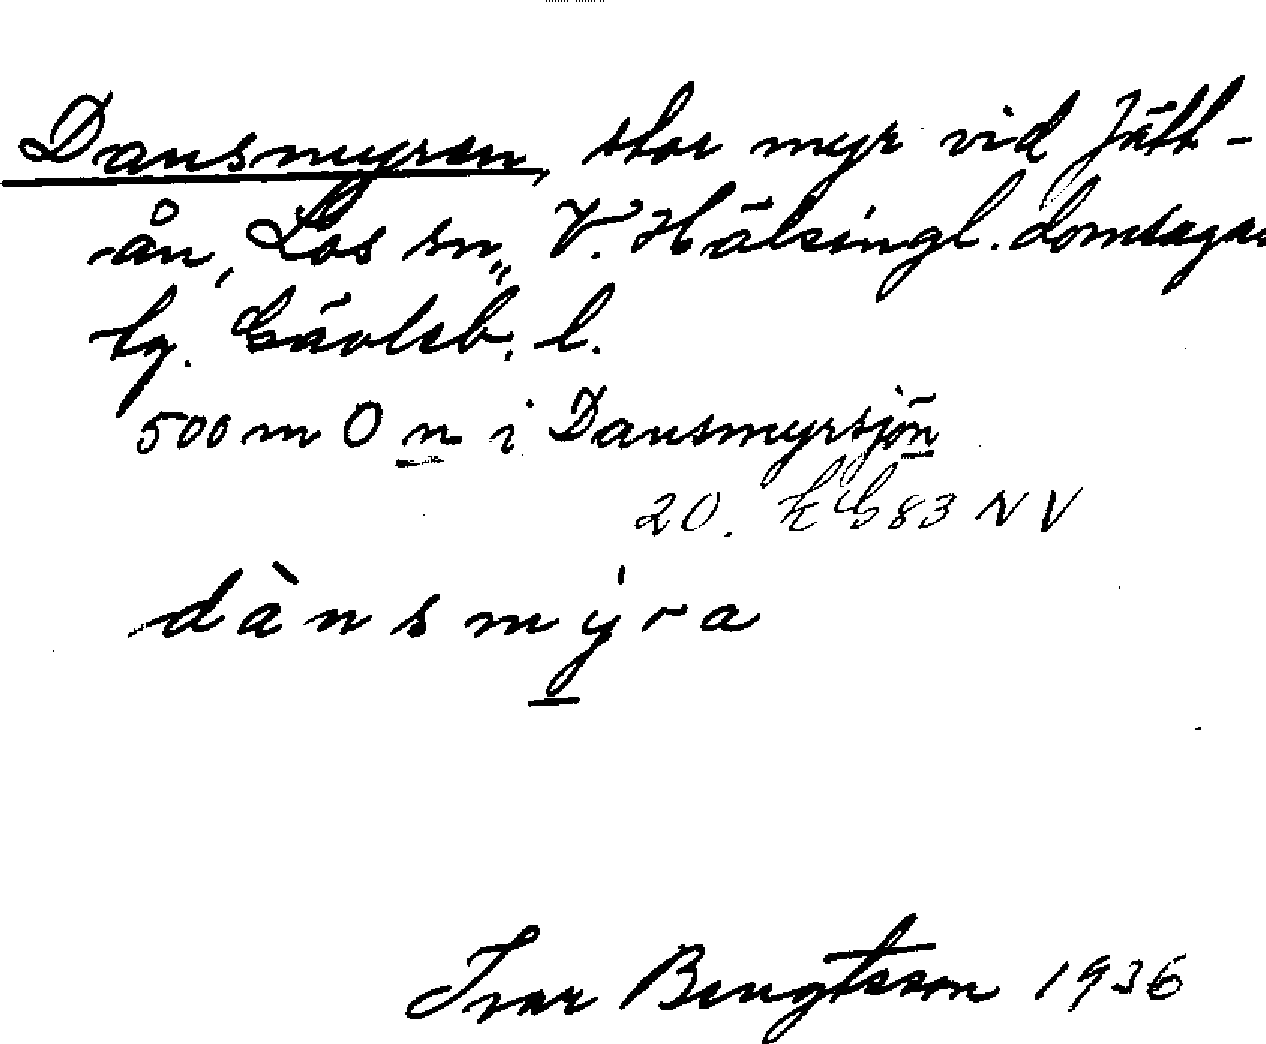 Dansmyren, stor myr vid Jätt-
ån, Los sn, V. Hälsingl. domsagas
tg. Gävleb. l.
500 m O n i Dansmyrsjön
20. EG83 NV
dànsmýra
Ivar Bengtsson 1936